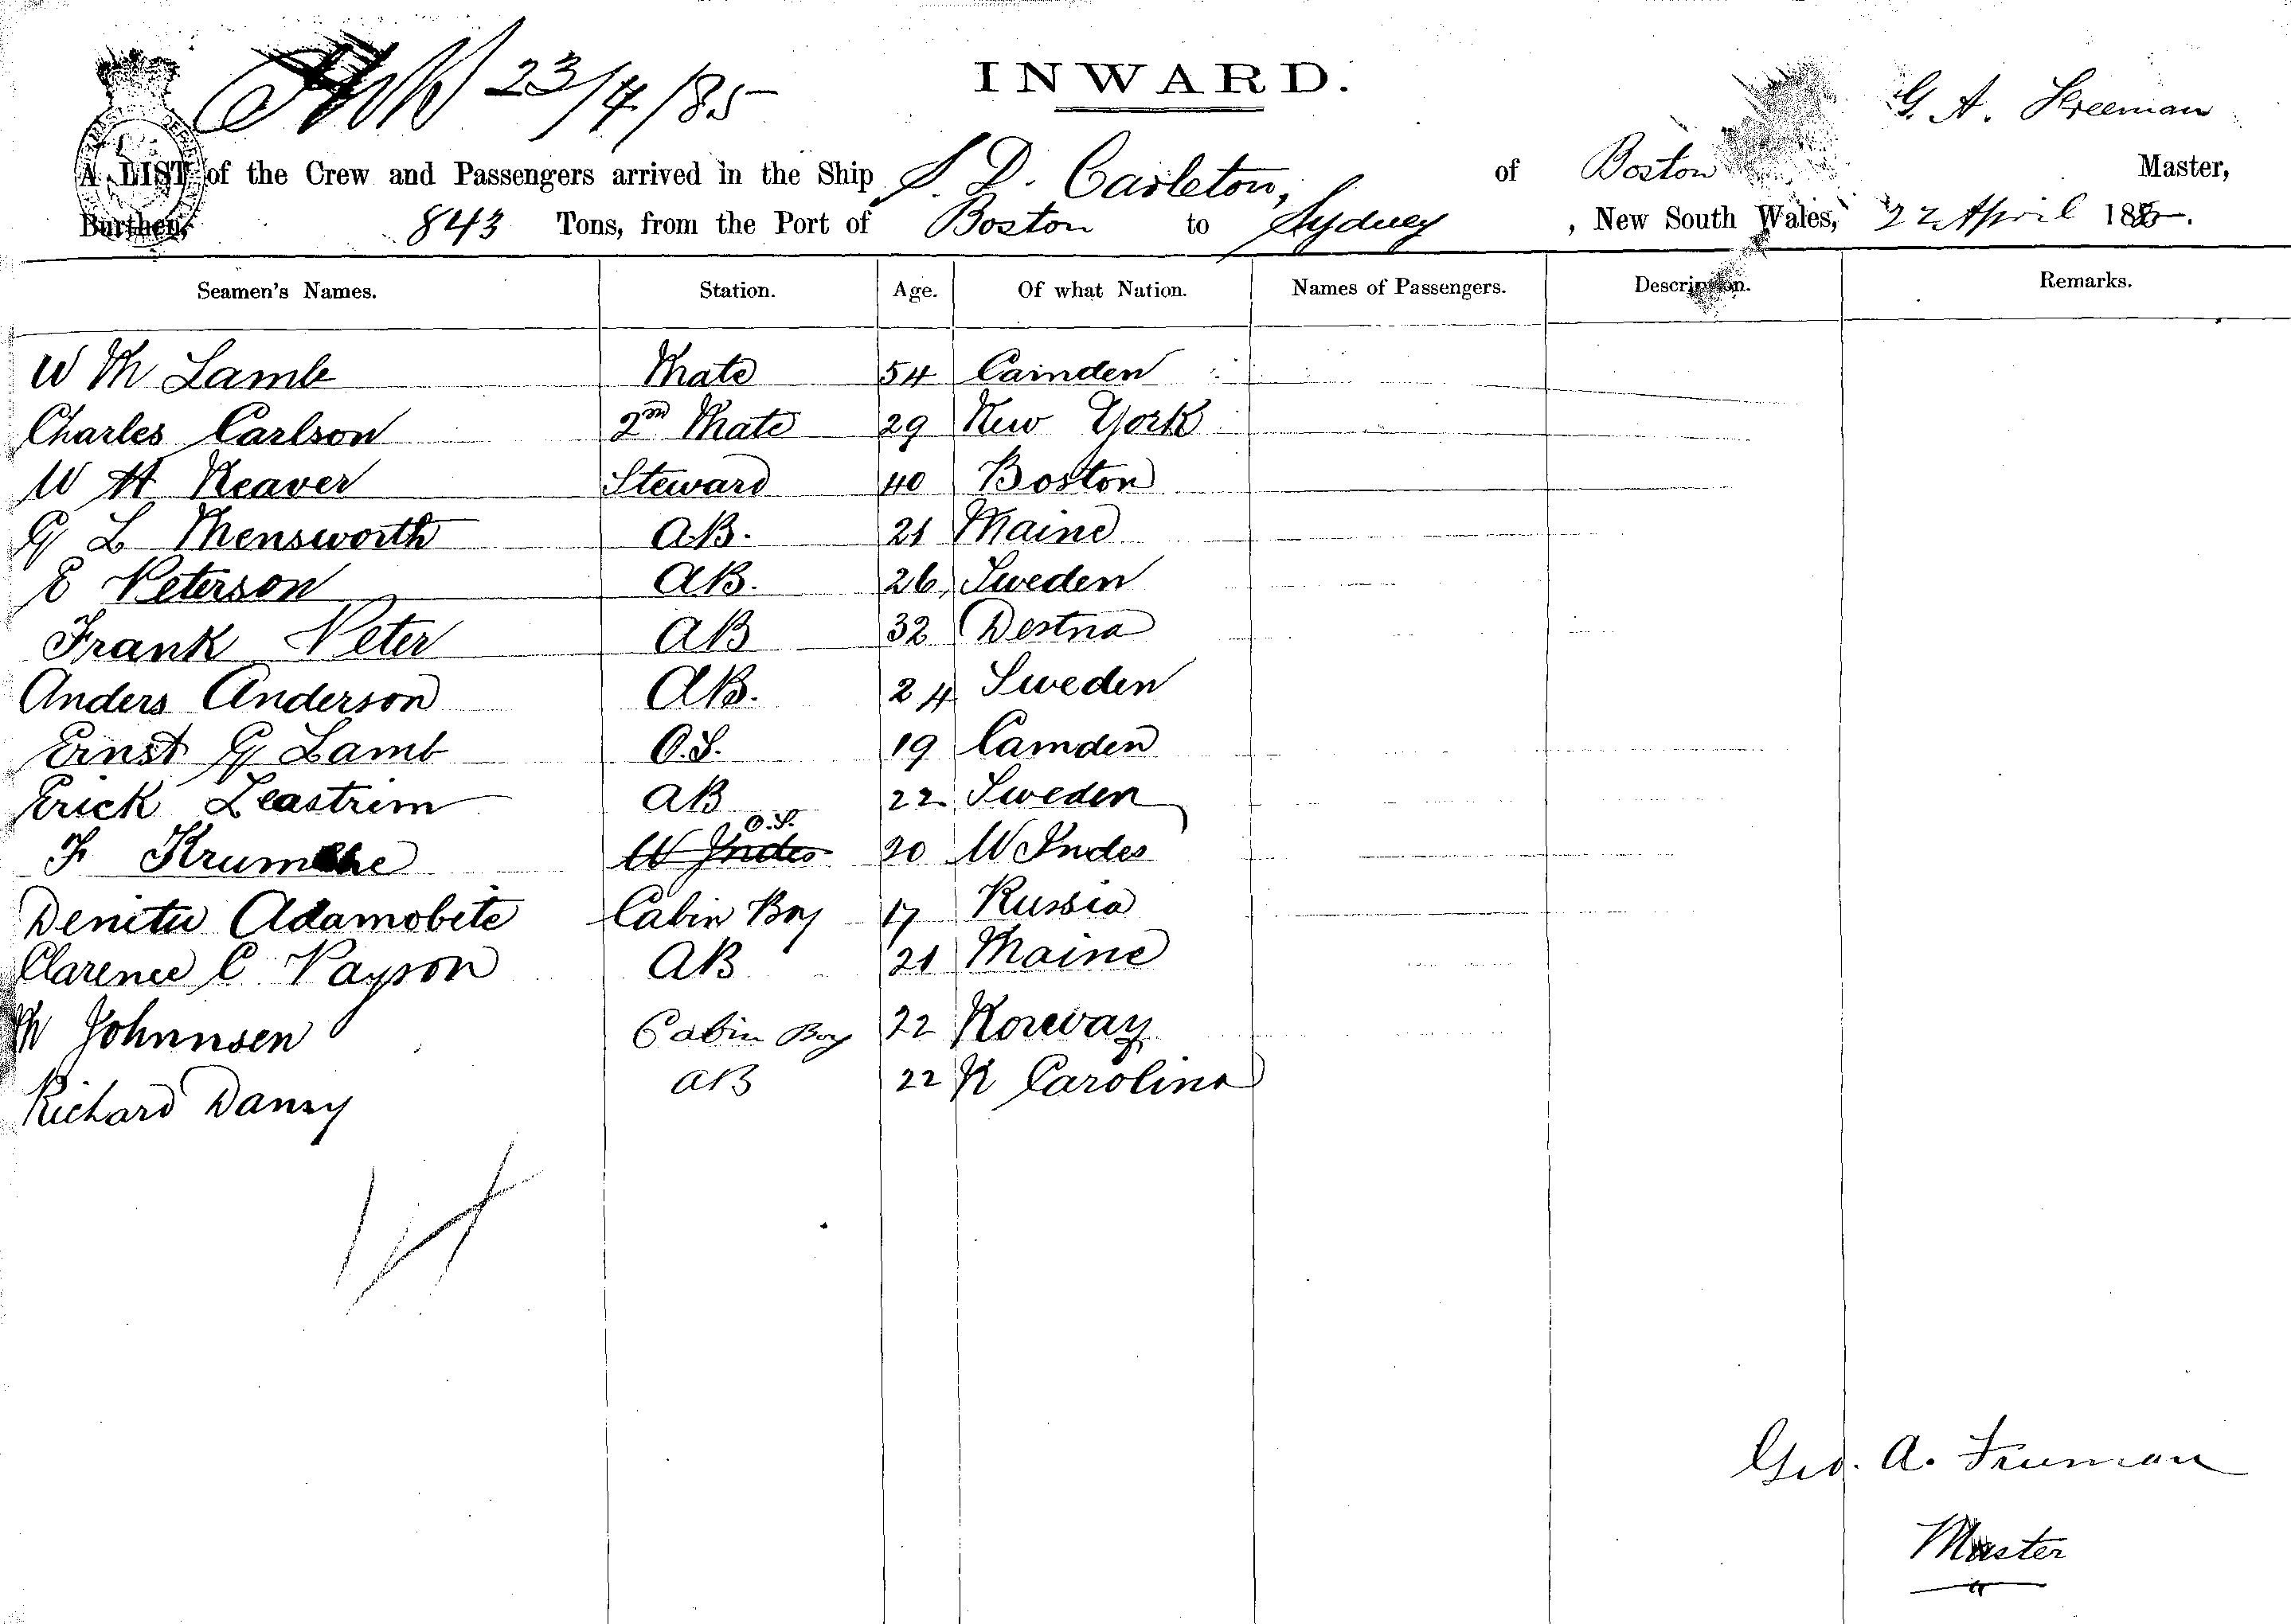 23/4/85
INWARD.
G. A. Freeman
A LIST of the Crew and Passengers arrived in the Ship S. D. Carleton, of Boston Master,
Burthen, 843 Tons, from the Port of Boston to Sydney, New South Wales, 22 April 1885.
Seamen's Names. Station. Age. Of what Nation. Names of Passengers. Description. Remarks.
W M Lamb Mate 54 Camden
Charles Carlson 2nd Mate 29 New York
W H Reaver Steward 40 Boston
G L Mensworth AB. 21 Maine
E Peterson AB. 26 Sweden
Frank Peter AB 32 Destna
Anders Anderson AB. 24 Sweden
Ernst G Lamb O.S. 19 Camden
Erick Leastrim AB 22 Sweden
O.S.
F W Indes 20 W Indes
Denitu Adamobete Cabin Boy 17 Russia
Clarence C Payson AB 21 Maine
M Johnnsen Cabin Boy 22 Norway
Richard Dansy AB 22 N Carolina
14
Geo. A. Freeman
Master